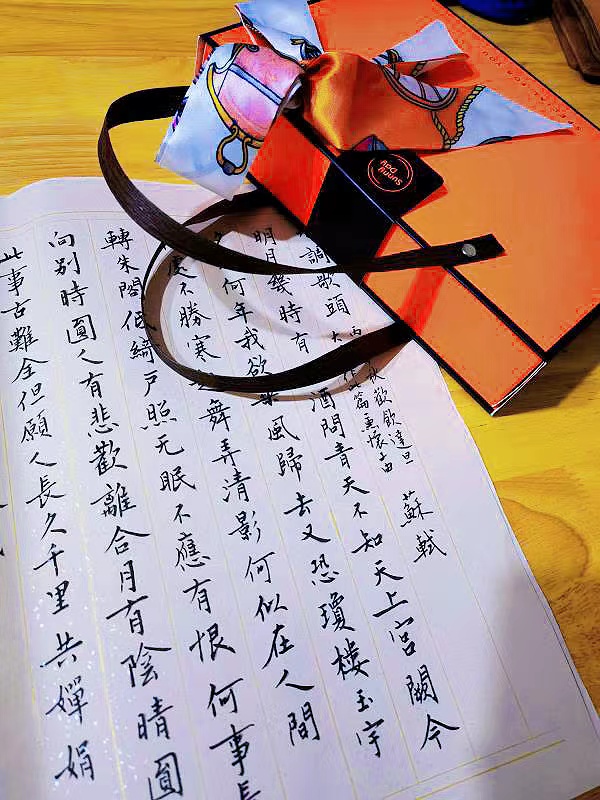 調歌頭
丙秋歡飲達旦
大篇兼懷子由
蘇軾
明月幾時有酒問青天不知天上宮闕今
何年我欲乘風歸去又恐瓊樓玉宇
處不勝寒舞弄清影何似在人間
轉朱閣低綺戶照无眠不應有恨何事長
向別時圓人有悲歡離合月有陰晴圓
此事古難全但願人長久千里共嬋娟
sunny